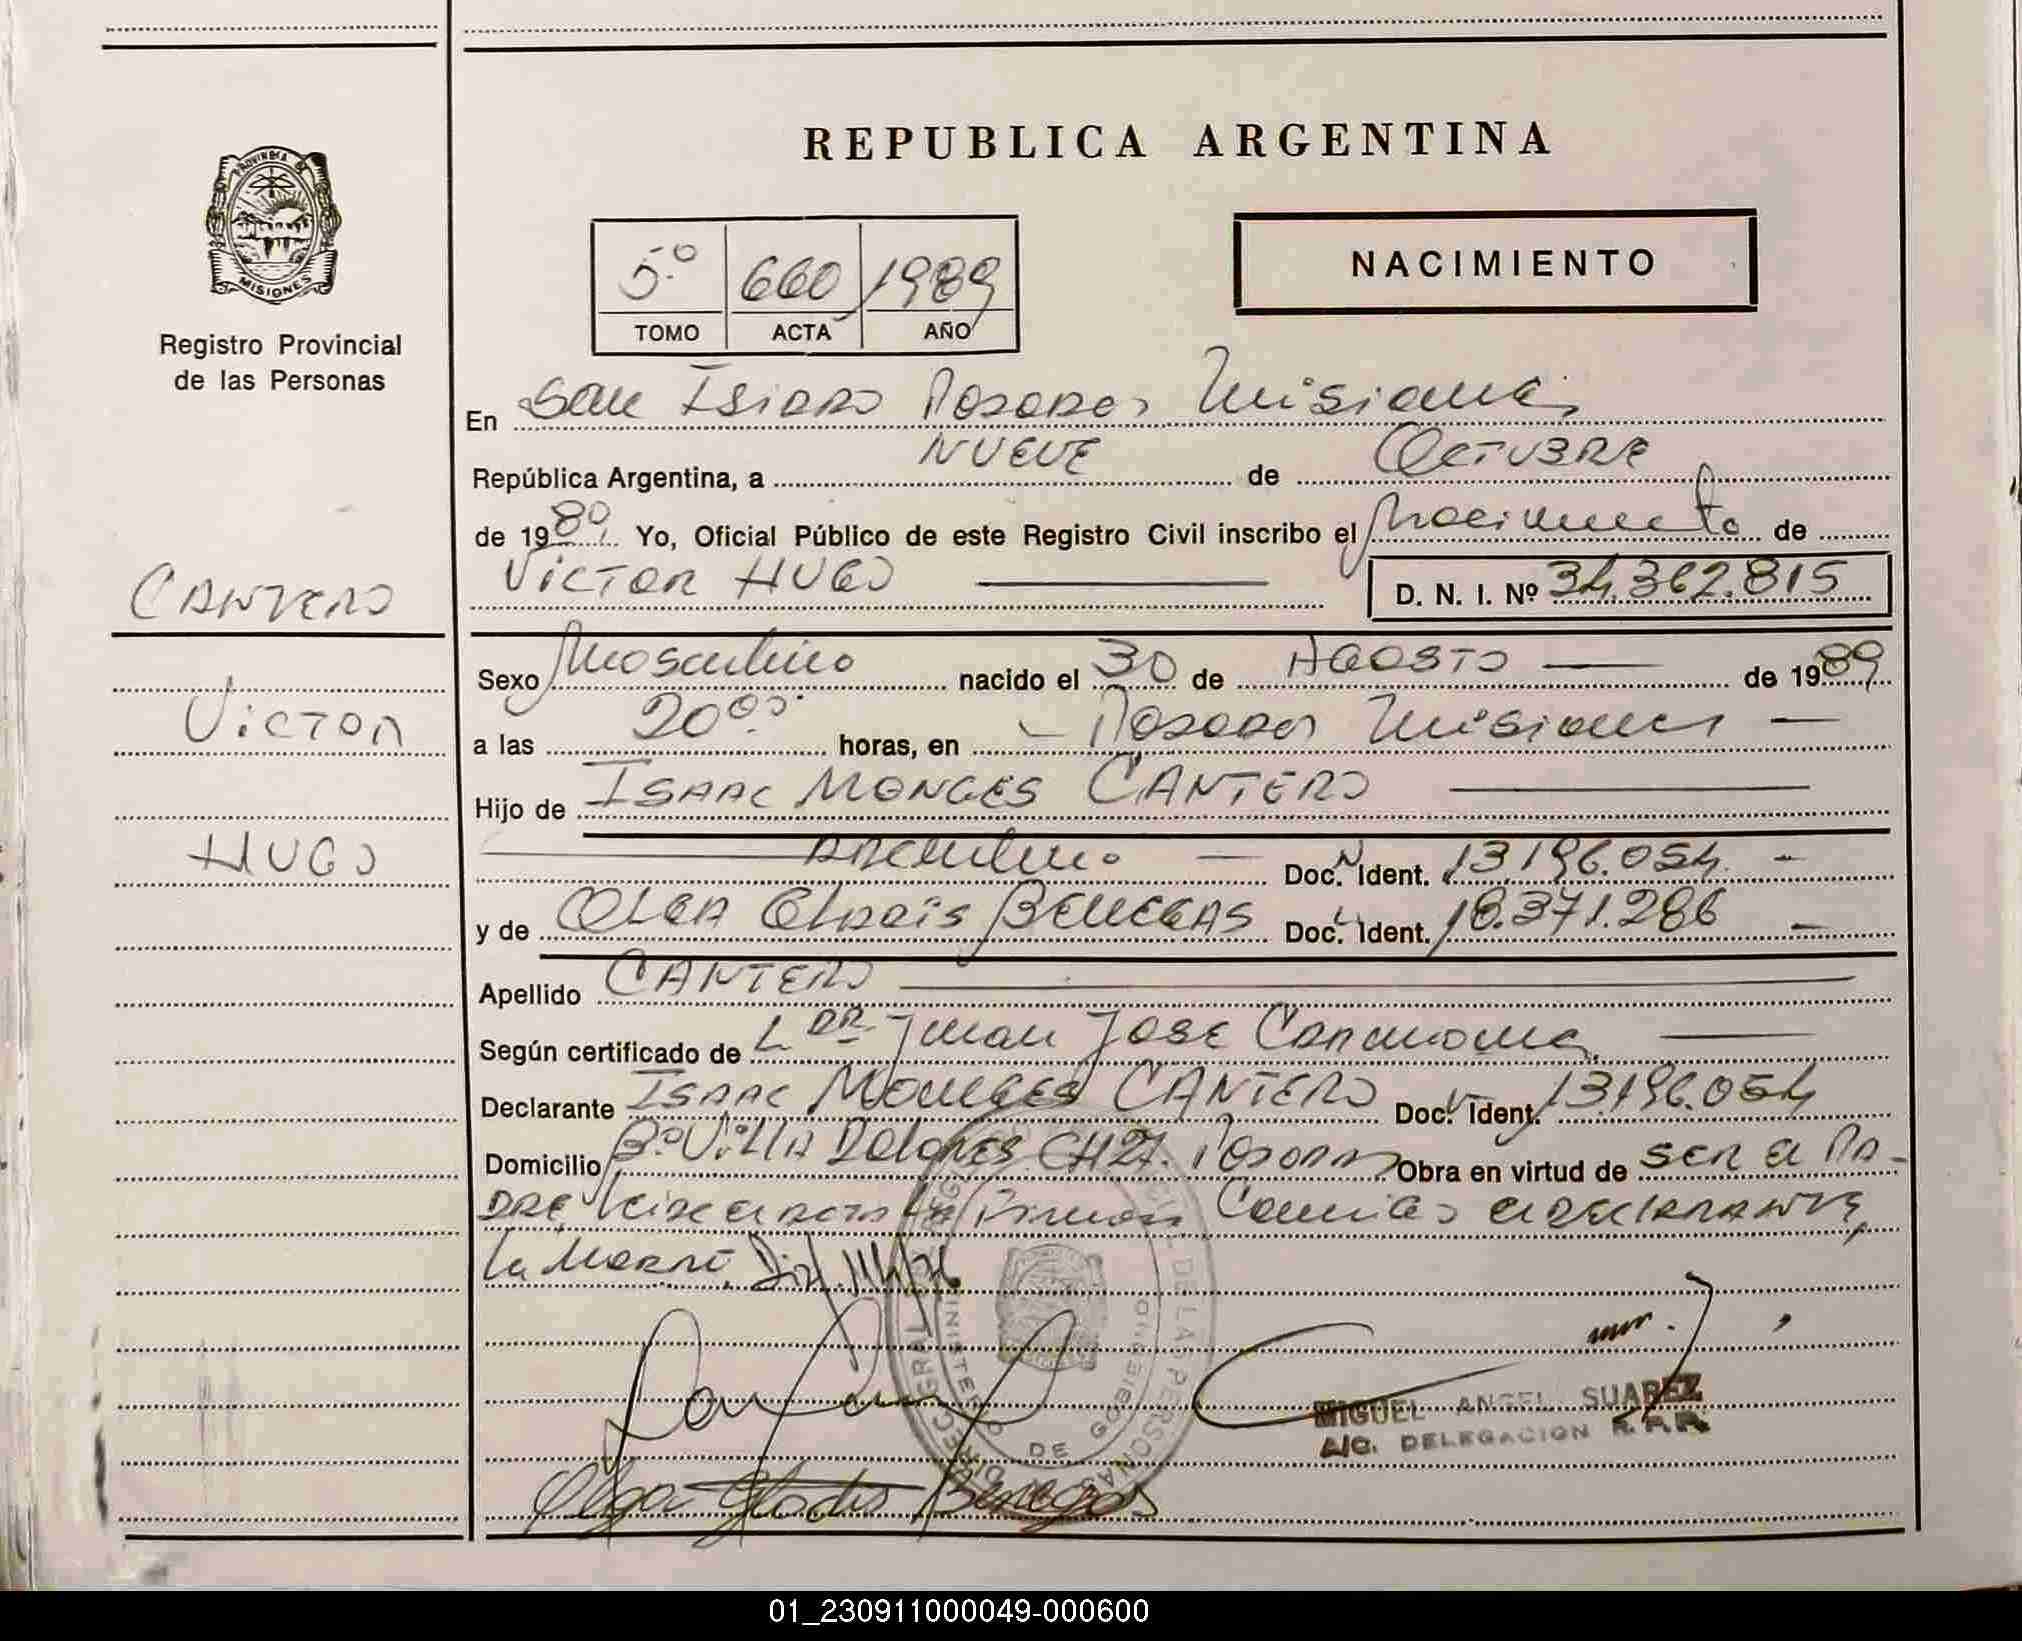 PROVINCIA DE
MISIONES
Registro Provincial
de las Personas
CANTERO
VICTOR
HUGO
REPUBLICA ARGENTINA
5º 660 1989
TOMO ACTA AÑO
NACIMIENTO
En San Isidro Posadas Misiones
República Argentina, a NUEVE de OCTUBRE
de 1989. Yo, Oficial Público de este Registro Civil inscribo el Nacimiento de
VICTOR HUGO
D. N. I. Nº 34.362.815
Sexo Masculino nacido el 30 de AGOSTO de 1989
a las 20:00 horas, en Posadas Misiones
Hijo de ISAAC MONGES CANTERO
Argentino Doc. Ident. 13.196.054
y de OLGA Gladis BENEGAS Doc. Ident. 18.371.286
Apellido CANTERO
Según certificado de Dr. Juan JOSE
Declarante ISAAC MONGES CANTERO Doc. Ident. 13.196.054
Domicilio Bº Villa Dolores CH 27. Posadas Obra en virtud de ser el PA-
DRE el acta La Firman Conmigo el DECLARANTE,
La Madre.
MINISTERIO DE GOBIERNO
DE LAS PERSONAS
MIGUEL ANGEL SUAREZ
A/C. DELEGACION
Olga Gladis Benegas
01_230911000049-000600